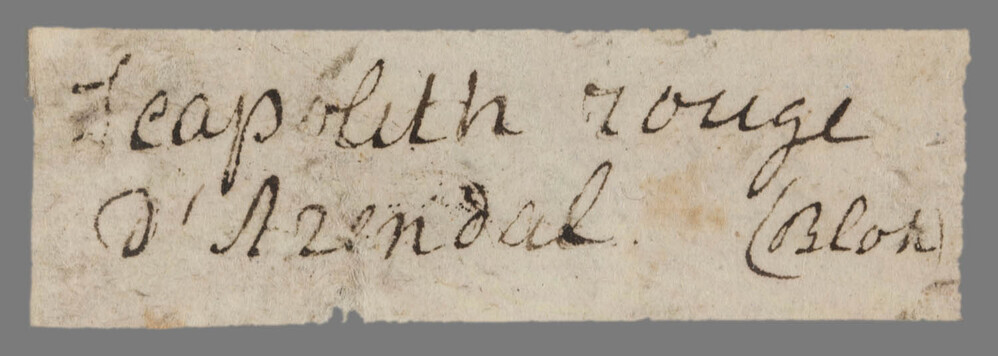 Scapolith rouge
d'Arendal. (Bloh)